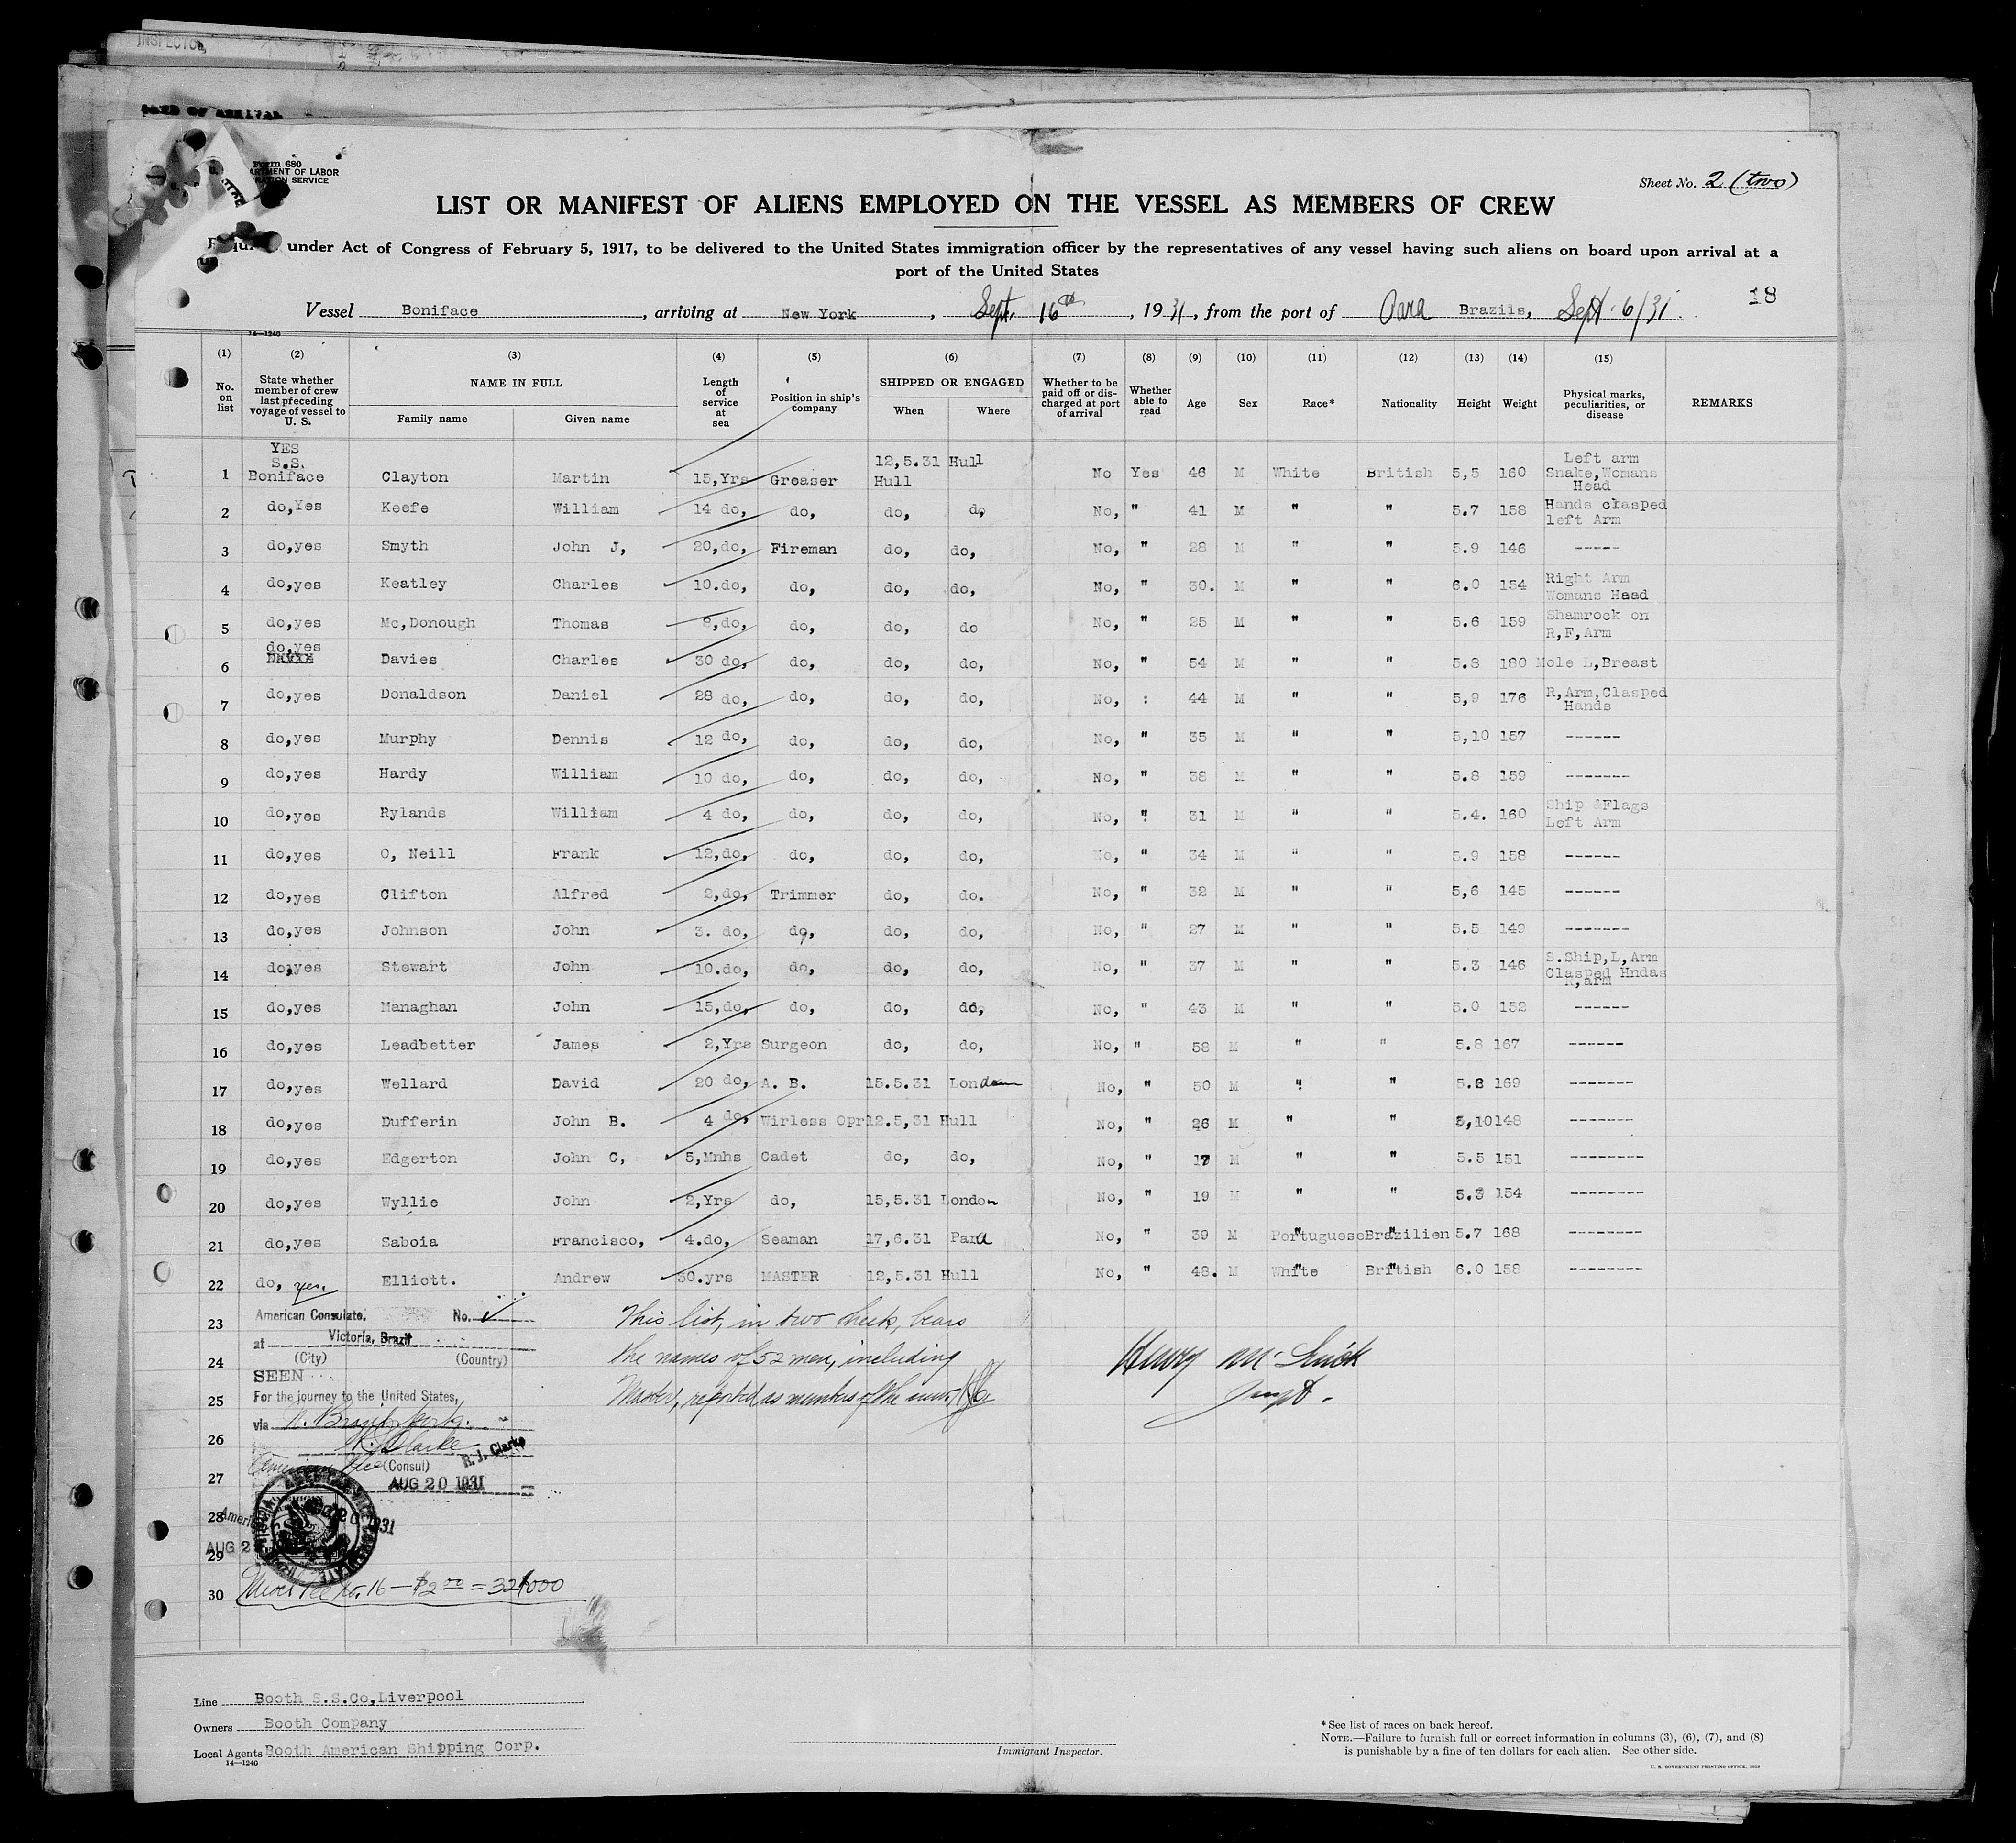 INSPECTOR,
Form 680
Sheet No. 2 (two)
LIST OR MANIFEST OF ALIENS EMPLOYED ON THE VESSEL AS MEMBERS OF CREW
under Act of Congress of February 5, 1917, to be delivered to the United States immigration officer by the representatives of any vessel having such aliens on board upon arrival at a
port of the United States
18
Vessel Boniface, arriving at New York, Sept. 16th, 1931, from the port of Para Brazils, Sept. 6/31.
14—1240
(1) (2) (3) (4) (5) (6) (7) (8) (9) (10) (11) (12) (13) (14) (15)
No. on list | State whether member of crew last preceding voyage of vessel to U. S. | NAME IN FULL | Length of service at sea | Position in ship's company | SHIPPED OR ENGAGED | Whether to be paid off or discharged at port of arrival | Whether able to read | Age | Sex | Race* | Nationality | Height | Weight | Physical marks, peculiarities, or disease | REMARKS
Family name | Given name | When | Where
1 YES S.S. Boniface Clayton Martin 15,Yrs Greaser 12,5.31 Hull Hull No Yes 46 M White British 5,5 160 Left arm Snake,Womans Head
2 do,Yes Keefe William 14 do, do, do, do, No, " 41 M " " 5.7 158 Hands clasped left Arm
3 do,yes Smyth John J, 20,do, Fireman do, do, No, " 28 M " " 5.9 146 -----
4 do,yes Keatley Charles 10.do, do, do, do, No, " 30. M " " 6.0 154 Right Arm Womans Head
5 do,yes Mc,Donough Thomas 8,do, do, do, do No, " 25 M " " 5.6 159 Shamrock on R,F,Arm
6 do,yes Davies Charles 30 do, do, do, do, No, " 54 M " " 5.8 180 Mole L,Breast
7 do,yes Donaldson Daniel 28 do, do, do, do, No, : 44 M " " 5,9 176 R,Arm,Clasped Hands
8 do,yes Murphy Dennis 12 do, do, do, do, No, " 35 M " " 5,10 157 ------
9 do,yes Hardy William 10 do, do, do, do, No, " 38 M " " 5.8 159 -------
10 do,yes Rylands William 4 do, do, do, do, No, " 31 M " " 5.4. 160 Ship &Flags Left Arm
11 do,yes O, Neill Frank 12,do, do, do, do, No, " 34 M " " 5.9 158 ------
12 do,yes Clifton Alfred 2,do, Trimmer do, do. No, " 32 M " " 5,6 145 ------
13 do,yes Johnson John 3. do, do, do, do, No, " 27 M " " 5.5 149 -------
14 do,yes Stewart John 10.do, do, do, do, No, " 37 M " " 5.3 146 S.Ship,L,Arm Clasped Hndas R,arm
15 do,yes Managhan John 15,do, do, do, do, No, " 43 M " " 5.0 152 ------
16 do,yes Leadbetter James 2,Yrs Surgeon do, do, No, " 58 M " " 5.8 167 ------
17 do,yes Wellard David 20 do, A. B. 15.5.31 London No, " 50 M " " 5.8 169 -------
18 do,yes Dufferin John B. 4 do, Wirless Opr 12.5,31 Hull No, " 26 M " " 5,10 148 -------
19 do,yes Edgerton John C, 5,Mnhs Cadet do, do, No, " 17 M " " 5.5 151 --------
20 do,yes Wyllie John 2,Yrs do, 15,5.31 London No, " 19 M " " 5.5 154 --------
21 do,yes Saboia Francisco, 4.do, Seaman 17,6.31 Para No, " 39 M Portuguese Brazilien 5.7 168 --------
22 do, yes. Elliott. Andrew 30.yrs MASTER 12,5.31 Hull No, " 48. M White British 6.0 158 --------
23
24
25
26
27
28
29
30
American Consulate, No.
at Victoria, Brazil
(City) (Country)
SEEN
For the journey to the United States,
via
R. J. Clarke
(Consul)
AUG 20 1931
This list, in two sheets, bears
the names of 52 men, including
Master, reported as members of the crew.
Henry
Inspt.
No. 16 — $2.00 = 32$000
Line Booth S.S.Co,Liverpool
Owners Booth Company
Local Agents Booth American Shipping Corp.
14—1240
Immigrant Inspector.
*See list of races on back hereof.
NOTE.—Failure to furnish full or correct information in columns (3), (6), (7), and (8)
is punishable by a fine of ten dollars for each alien. See other side.
U. S. GOVERNMENT PRINTING OFFICE,